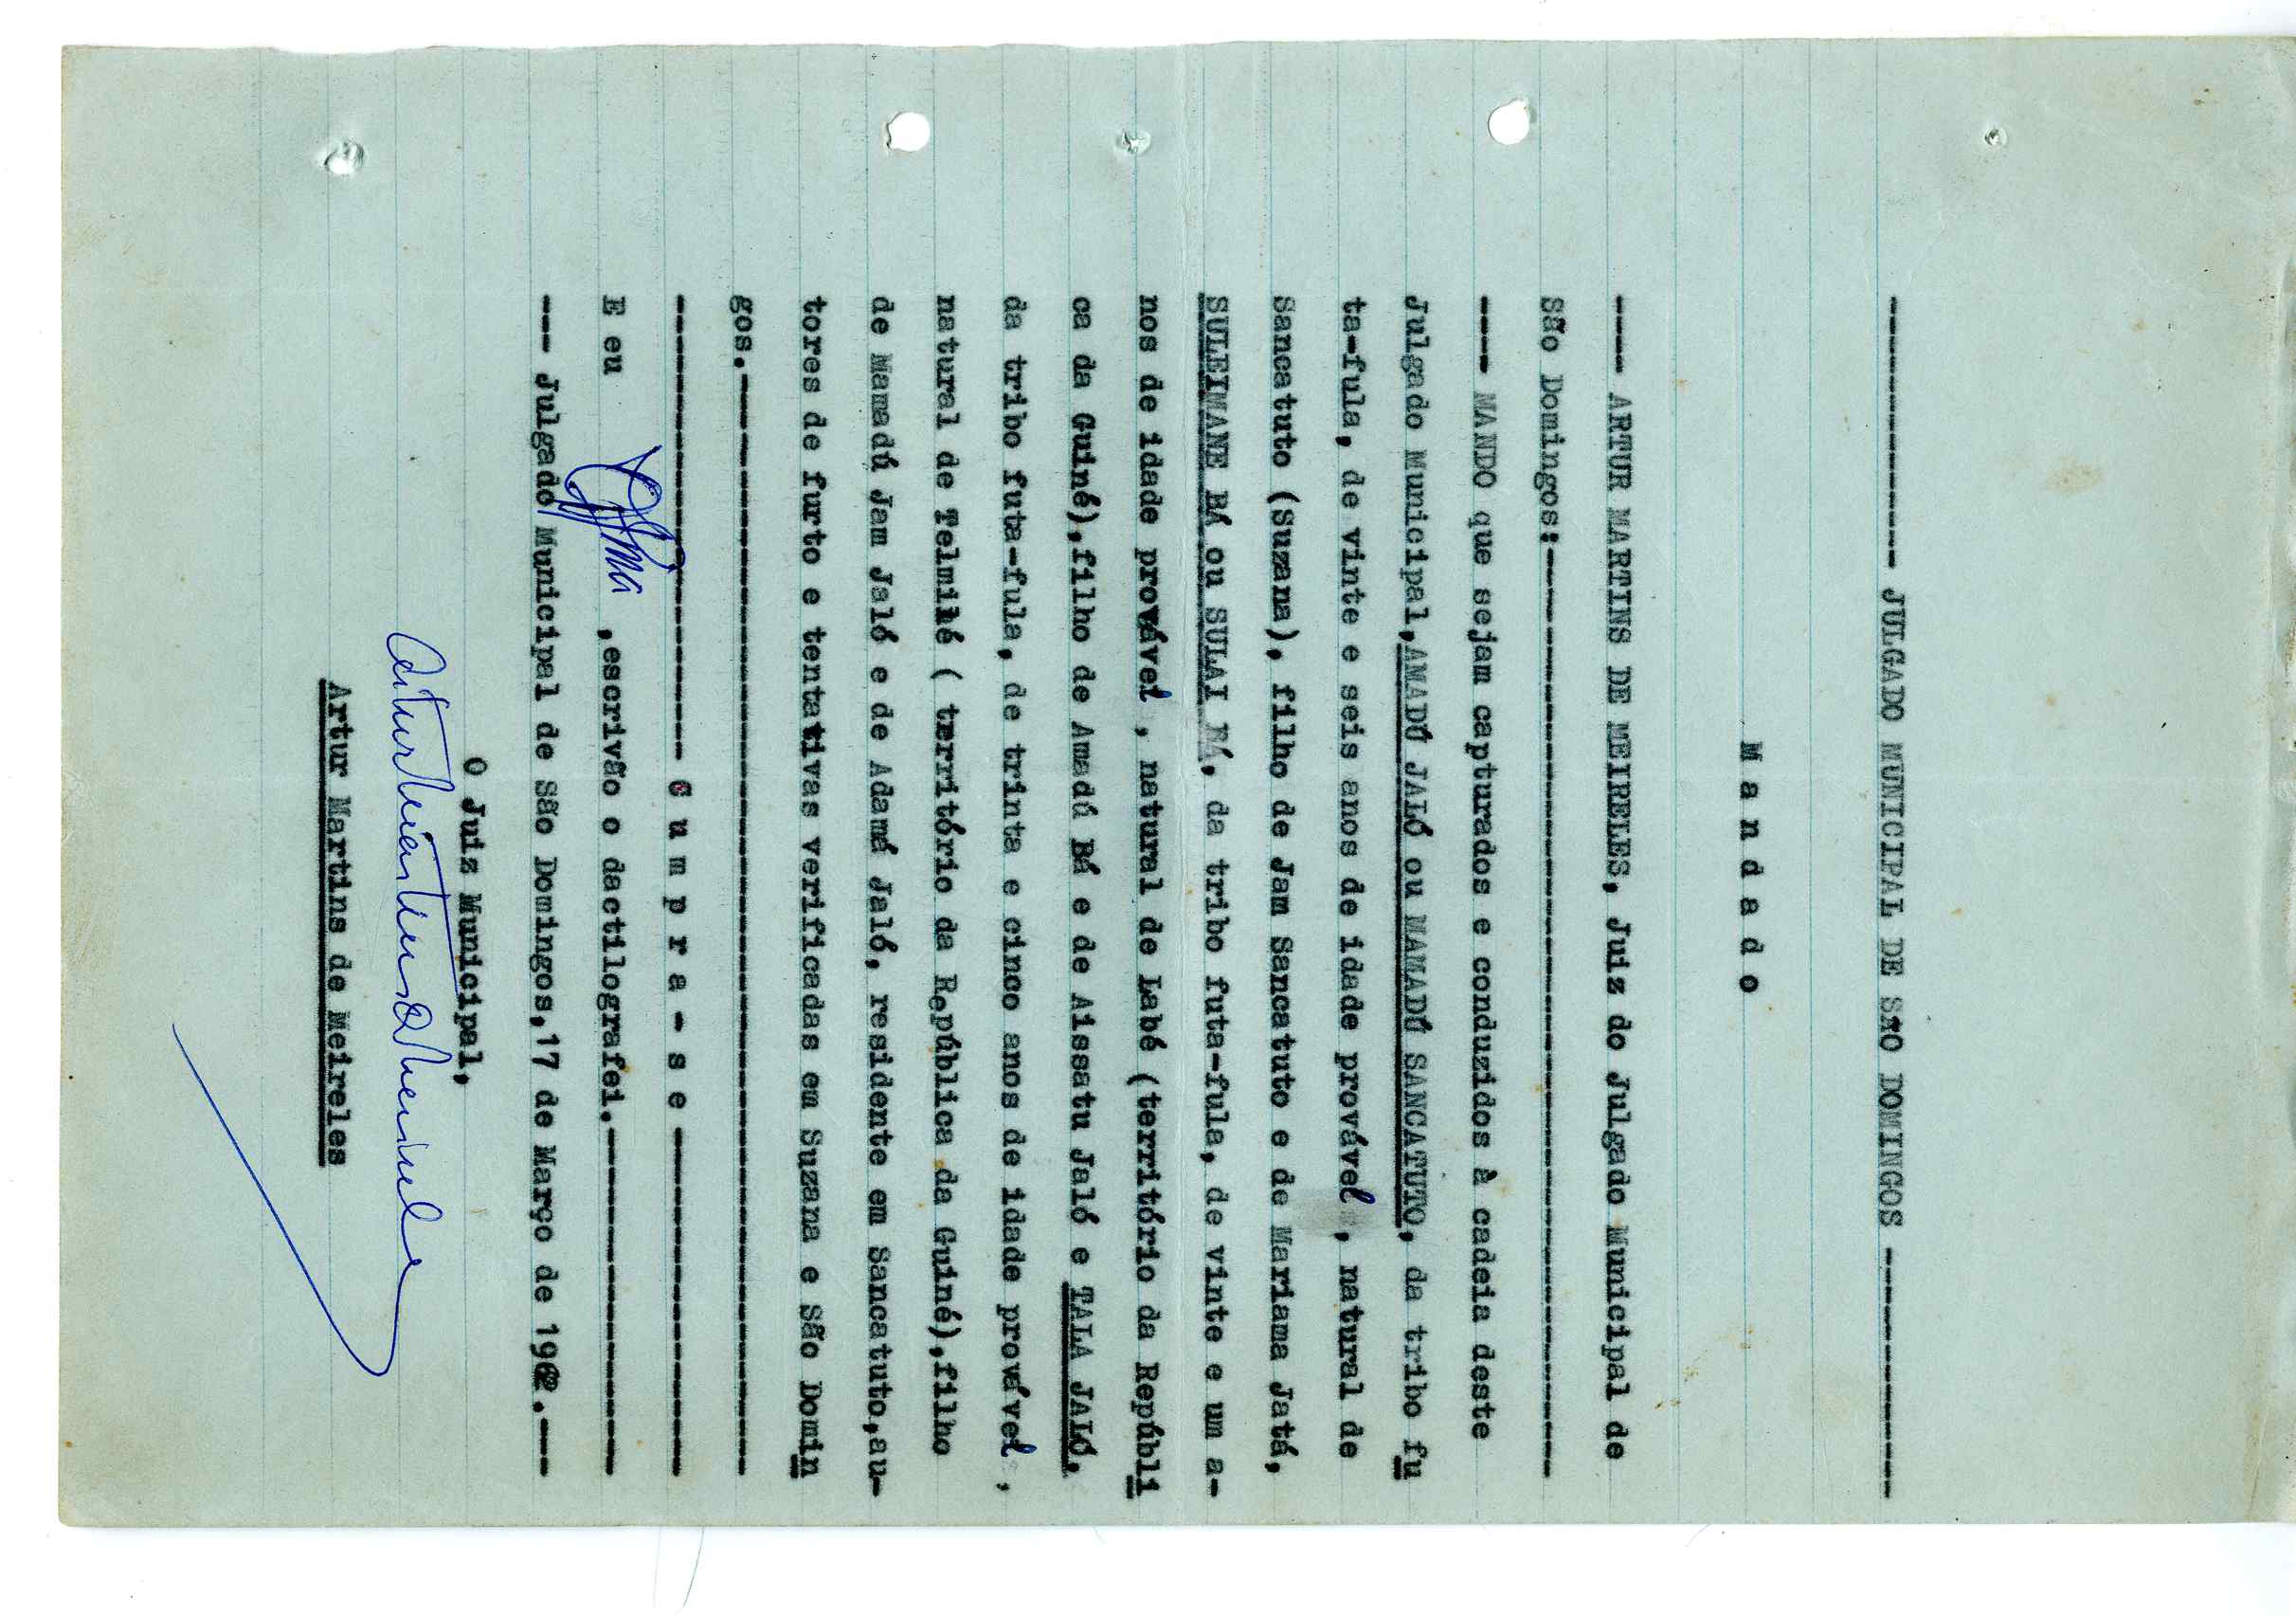 ------------ JULGADO MUNICIPAL DE SÃO DOMINGOS ------------
M a n d a d o
---- ARTUR MARTINS DE MEIRELES, Juiz do Julgado Municipal de
São Domingos:------------------------------------------------
---- MANDO que sejam capturados e conduzidos à cadeia deste
Julgado Municipal,AMADÚ JALÓ ou MAMADÚ SANCATUTO, da tribo fu
ta-fula, de vinte e seis anos de idade provável, natural de
Sancatuto (Suzana), filho de Jam Sancatuto e de Mariama Jatá,
SULEIMANE BÁ ou SULAI BÁ, da tribo futa-fula, de vinte e um a-
nos de idade provável , natural de Labé (território da Repúbli
ca da Guiné),filho de Amadú Bá e de Aissatu Jaló e TALA JALÓ,
da tribo futa-fula, de trinta e cinco anos de idade provável ,
natural de Telmilé ( território da República da Guiné),filho
de Mamadú Jam Jaló e de Adamá Jaló, residente em Sancatuto,au-
tores de furto e tentativas verificadas em Suzana e São Domin
gos.---------------------------------------------------------
------------------------ C u m p r a - s e ------------------
E eu , escrivão o dactilografei.------------------
--- Julgado Municipal de São Domingos,17 de Março de 1962.---
O Juiz Municipal,
Artur Martins de Meireles
Artur Martins de Meireles